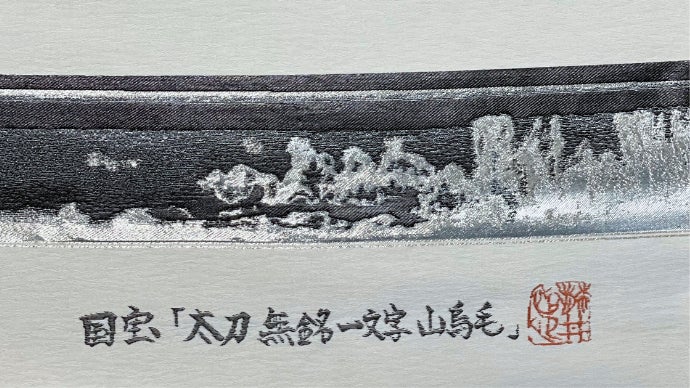 国宝「太刀 無銘一文字 山鳥毛」